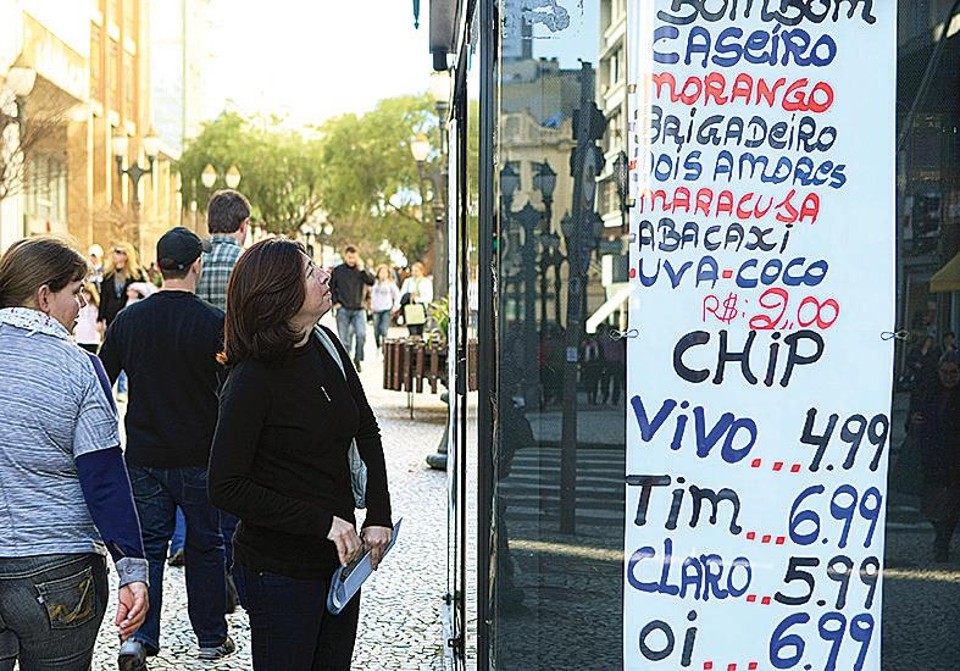 BOMBOM
CASEÍRO
MORANGO
BRiGADEiRO
DOiS AMORES
MARACUJA
ABACAXi
UVA-COCO
R$: 2,00
CHiP
ViVO...4.99
Tim...6.99
CLARO..5.99
Oi....6.99